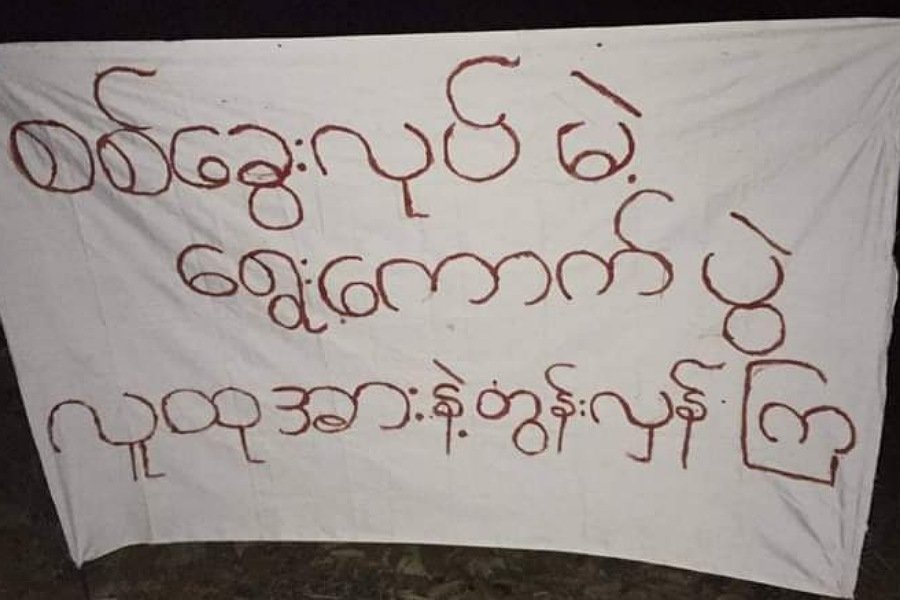 စစ်ခွေးလုပ် မဲ့
ရွေးကောက် ပွဲ
လူထုအားနဲ့တွန်းလှန် ကြ